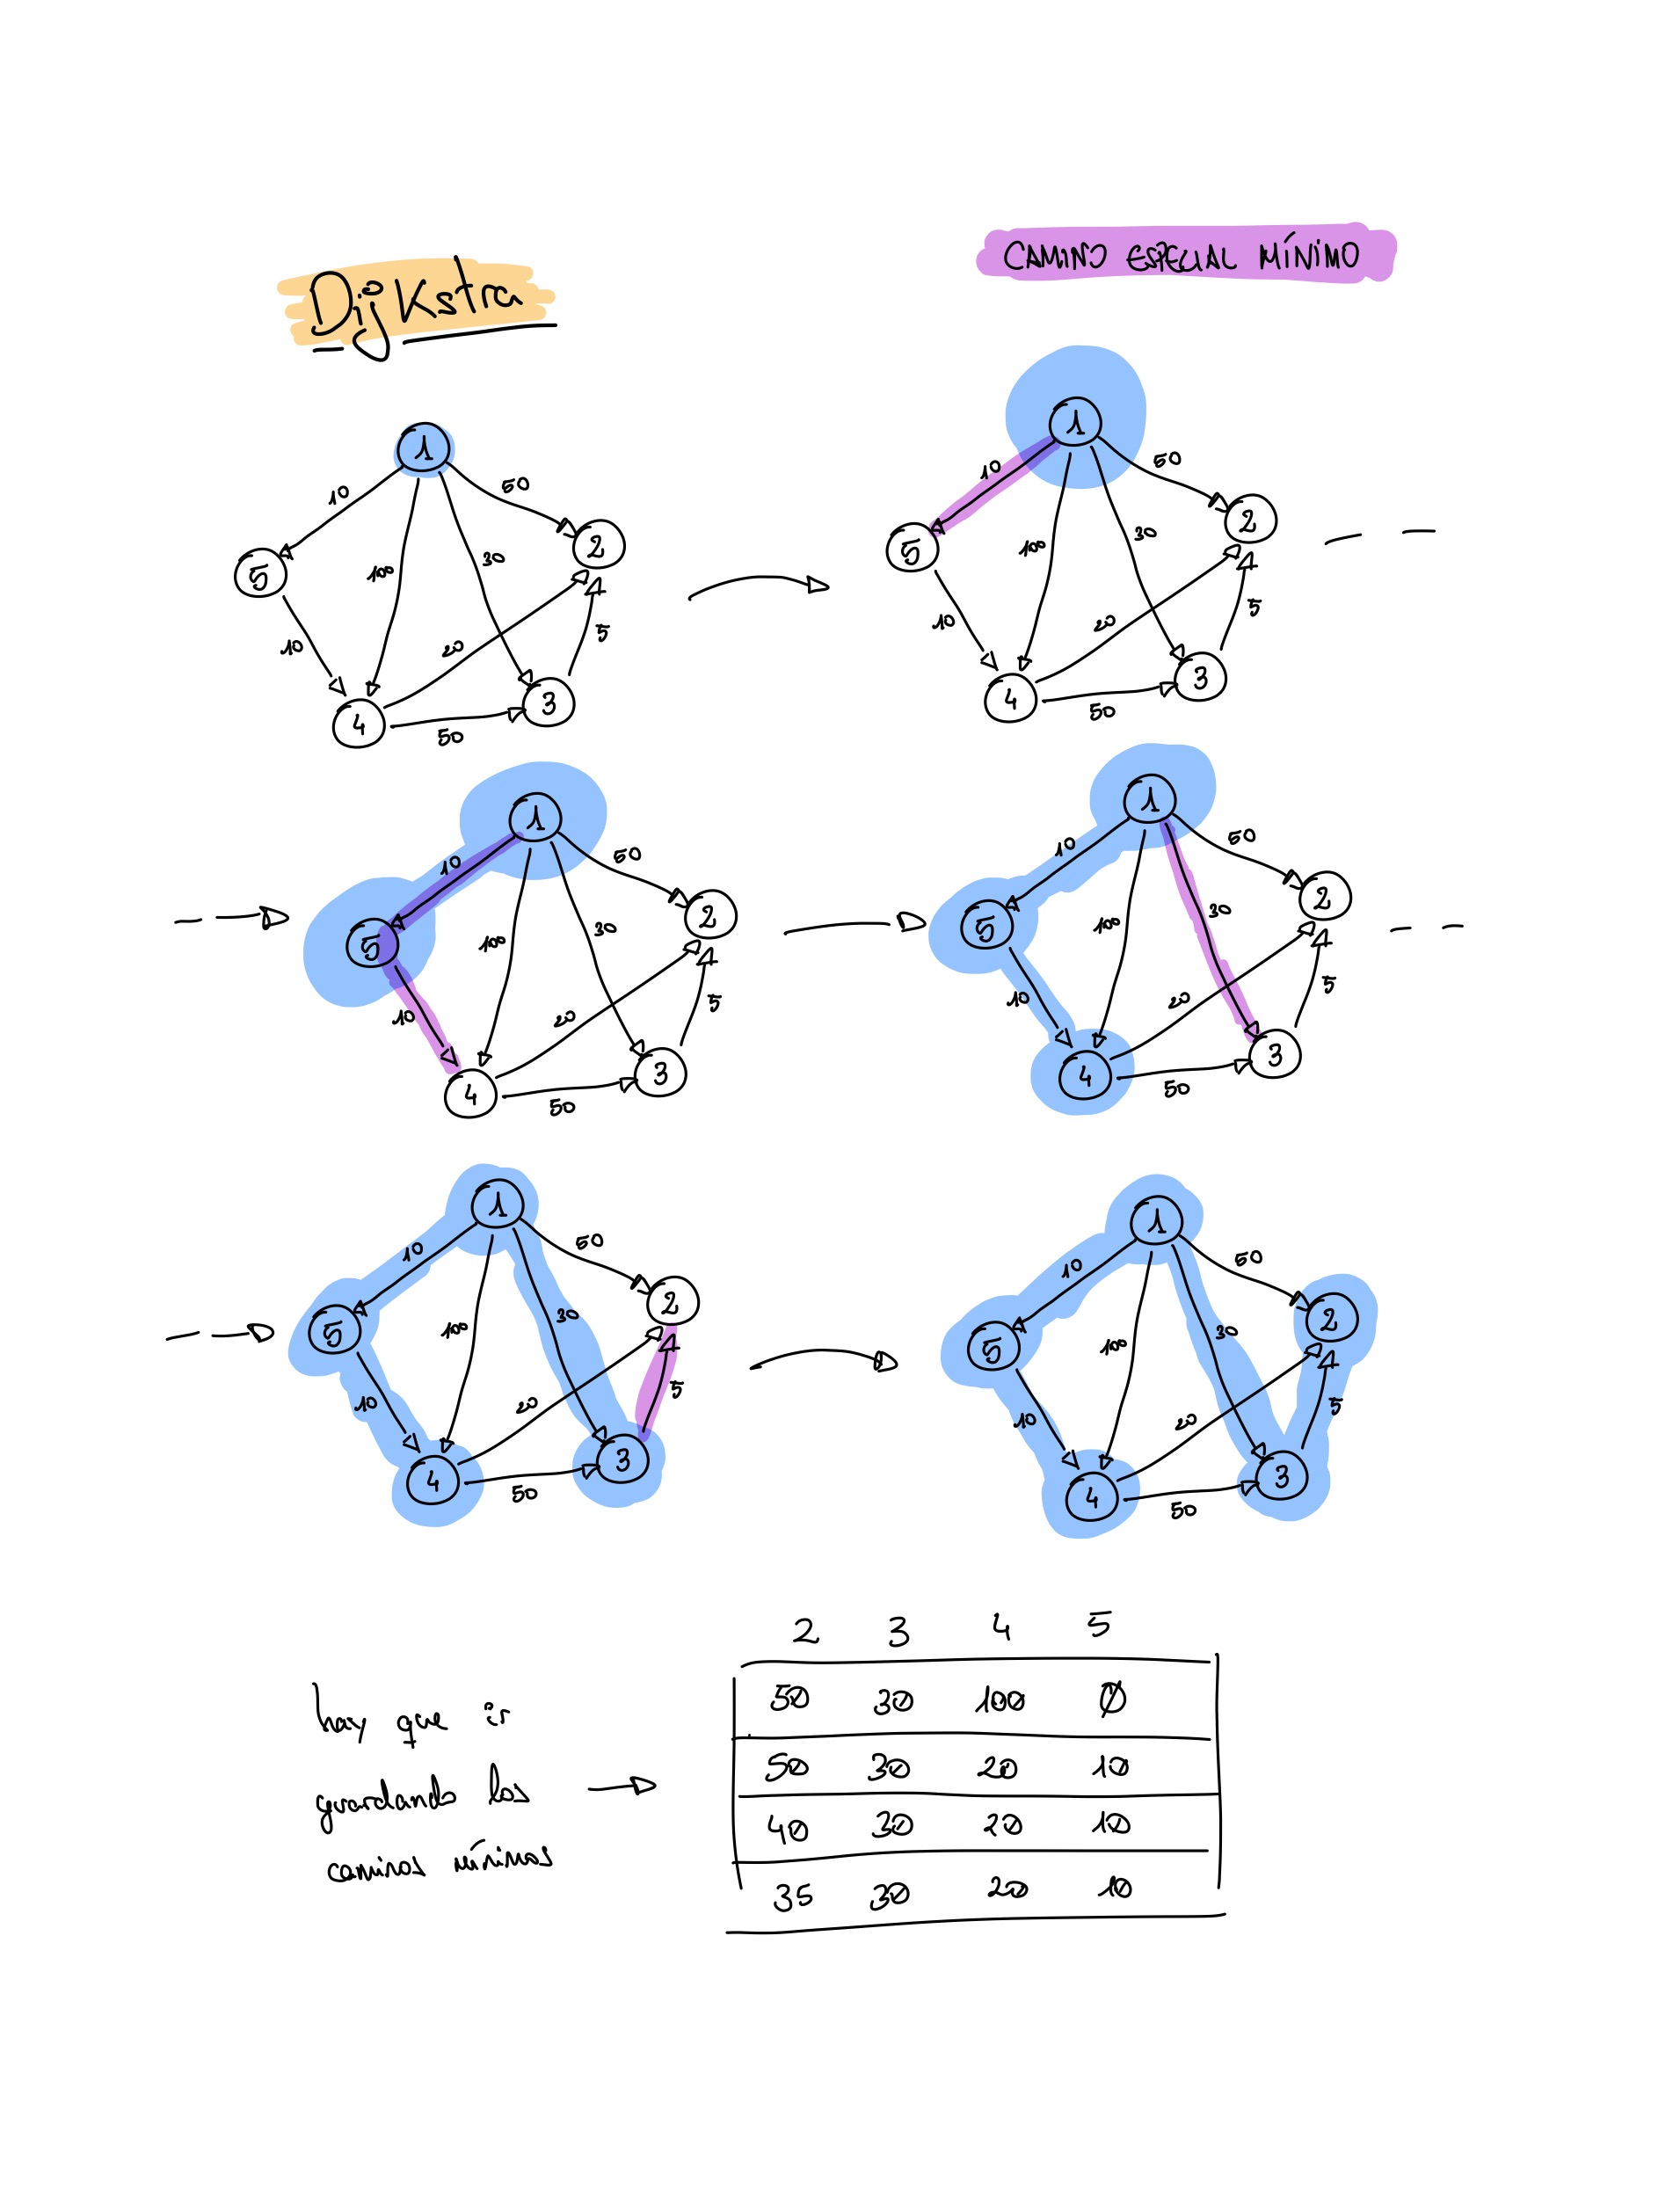 Dijkstra
CAMINO ESPECIAL MÍNIMO
1
10
50
5
100
30
2
10
20
5
4
50
3
1
10
50
5
100
30
2
10
20
5
4
50
3
1
10
50
5
100
30
2
10
20
5
4
50
3
1
10
50
5
100
30
2
10
20
5
4
50
3
1
10
50
5
100
30
2
10
20
5
4
50
3
1
10
50
5
100
30
2
10
20
5
4
50
3
hay que ir
guardando los
caminos mínimos
2 3 4 5
50 30 100 0
50 30 20 10
40 30 20 10
35 30 20 10